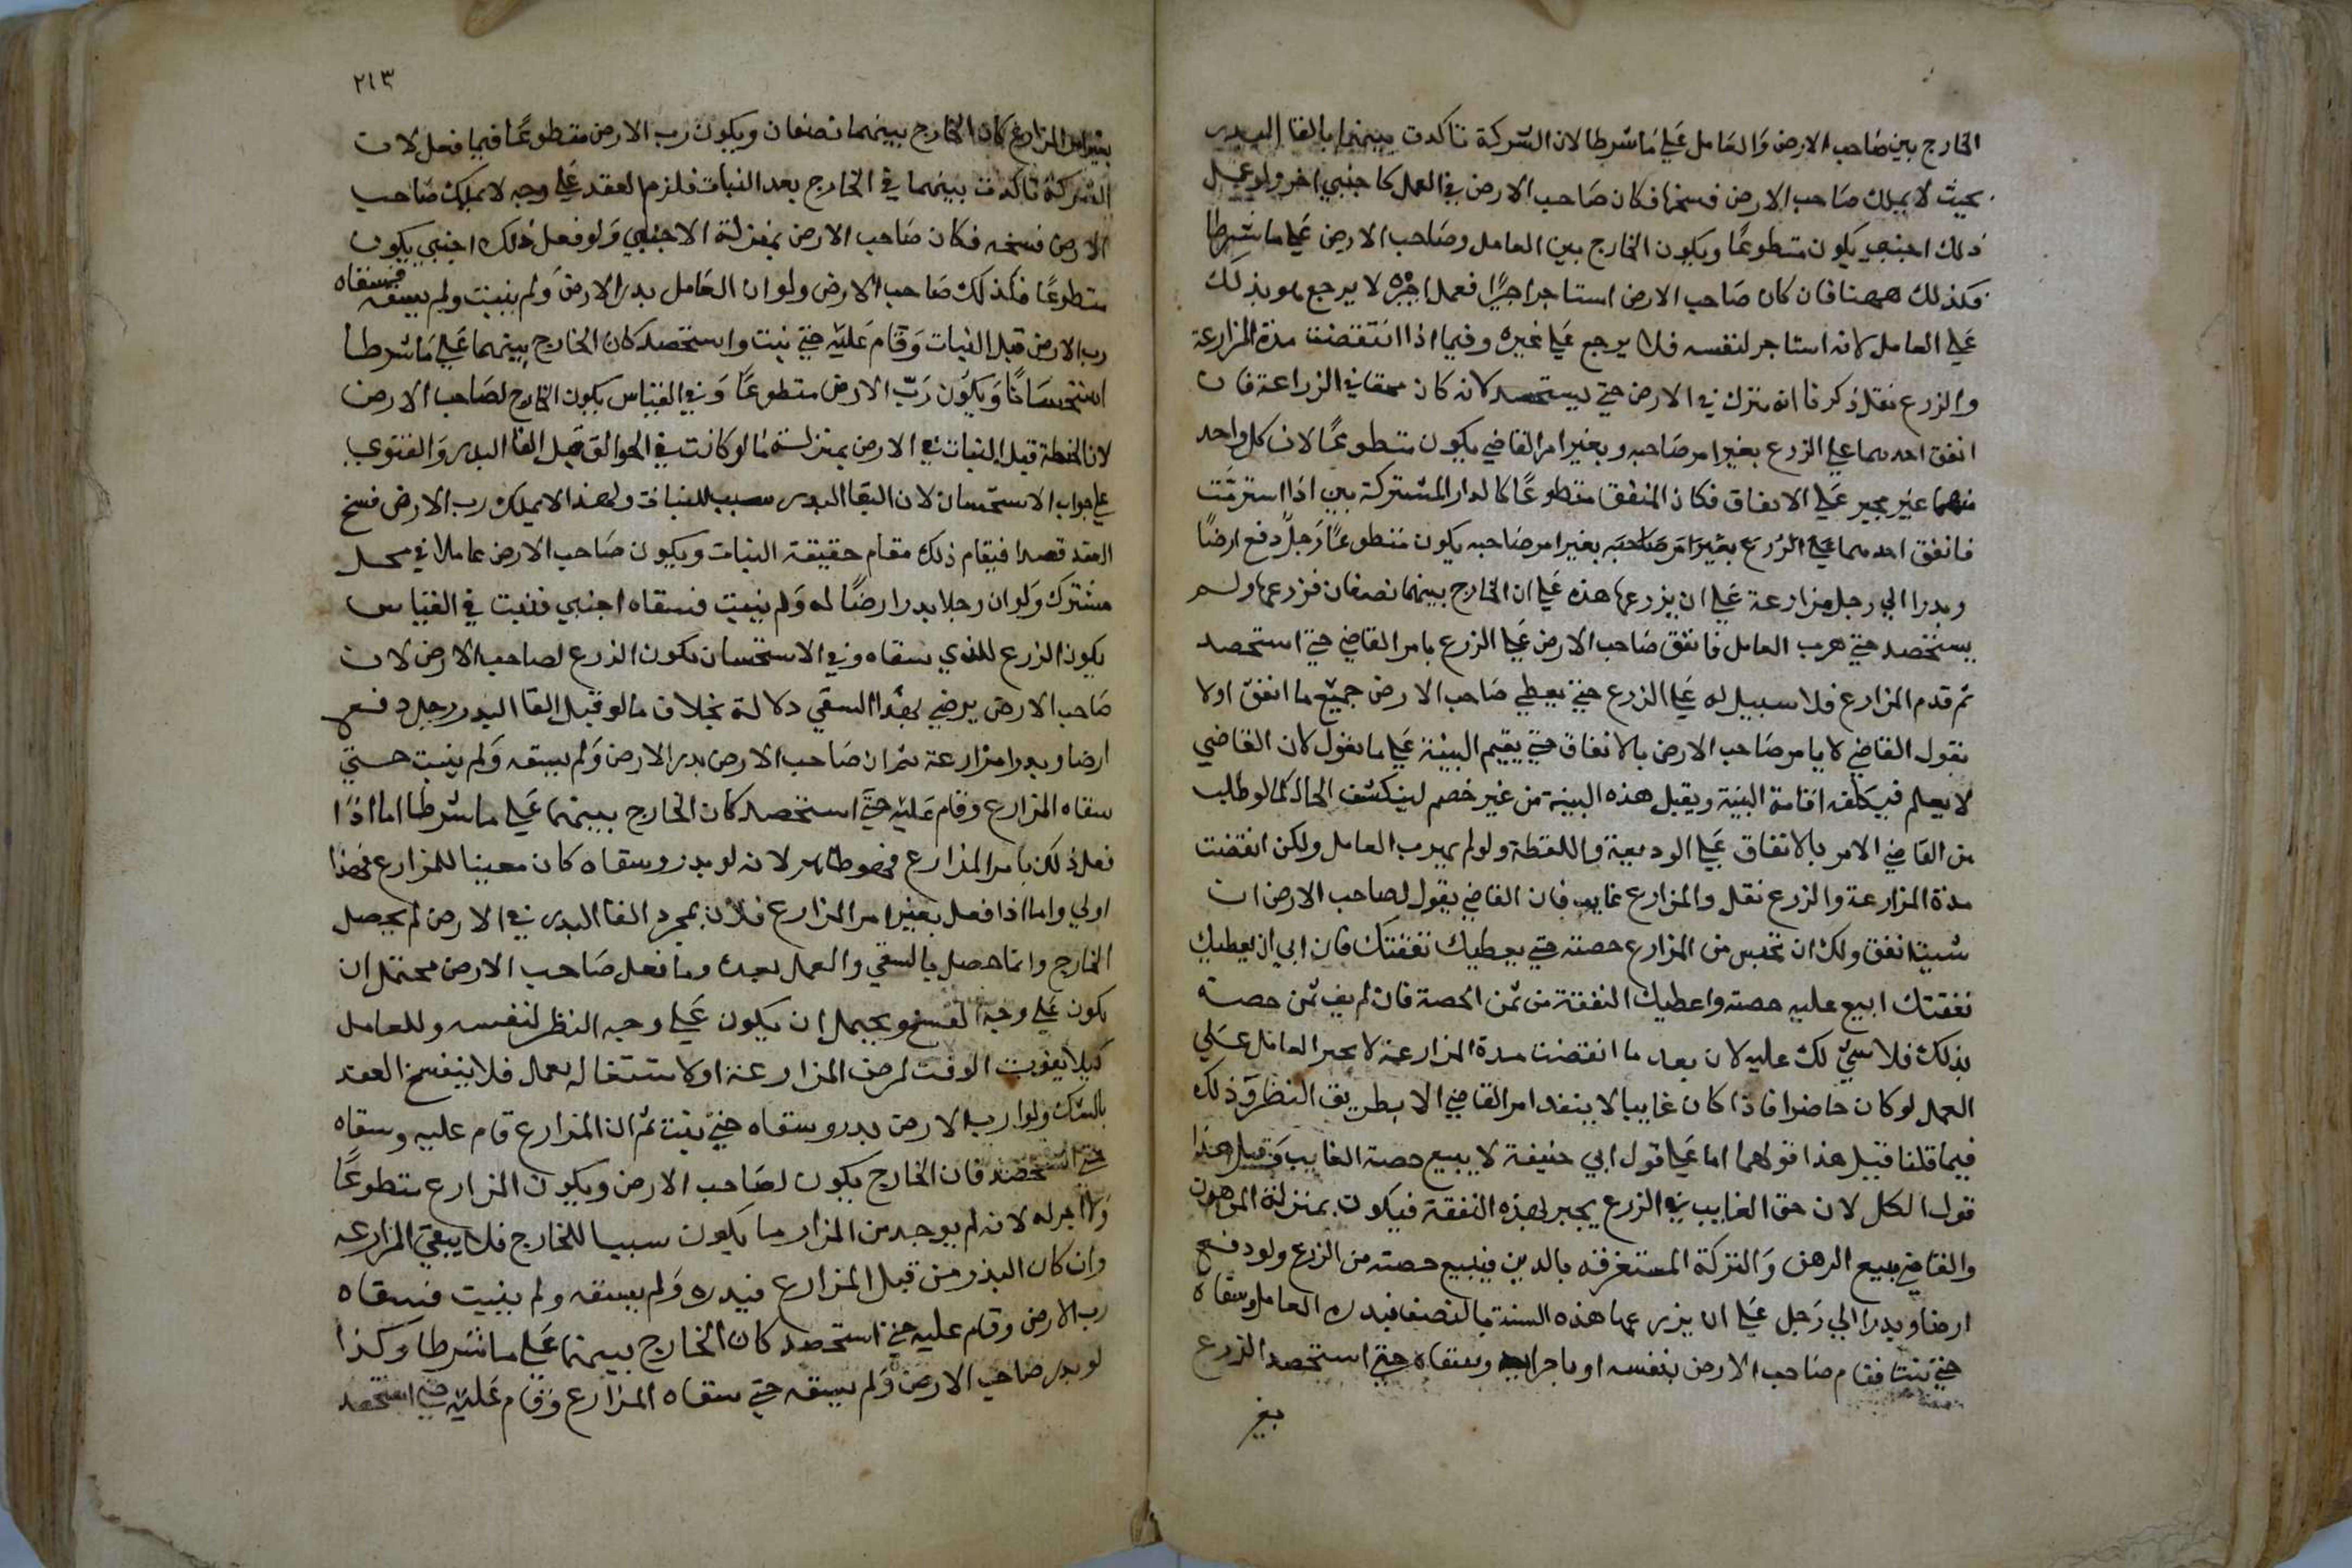 الخارج بين صاحب الارض والعامل على ما شرطا لان الشركة تاكدت بينهما بالقا البدر
بحيث لا يملك صاحب الارض فسخها فكان صاحب الارض في العمل كاجنبي اخر ولو عمل
ذلك اجنبي يكون متطوعا ويكون الخارج بين العامل وصاحب الارض على ما شرطا
فكذلك ههنا فان كان صاحب الارض استاجر اجيرا فعمل اجيره لا يرجع هو بذلك
على العامل لانه استاجر لنفسه فلا يرجع على غيره وفيما اذا انقضت مدة المزارعة
والزرع بقل ذكرنا انه يترك في الارض حتى يستحصد لانه كان محقا في الزراعة فان
انفق احدهما على الزرع بغير امر صاحبه وبغير امر القاضي يكون متطوعا لان كل واحد
منهما غير مجبر على الانفاق فكان المنفق متطوعا كالدار المشتركة بين اذا استرمت
فانفق احدهما على الزرع بغير امر صاحبه بغير امر صاحبه يكون متطوعا رجل دفع ارضا
وبدرا الى رجل مزارعة على ان يزرعها هذه على ان الخارج بينهما نصفان فزرعها ولم
يستحصد حتى هرب العامل فانفق صاحب الارض على الزرع بامر القاضي حتى استحصد
ثم قدم المزارع فلا سبيل له على الزرع حتى يعطي صاحب الارض جميع ما انفق اولا
بقول القاضي لا يامر صاحب الارض بالانفاق حتى يقيم البينة على ما يقول لان القاضي
لا يعلم فيكلفه اقامة البينة ويقبل هذه البينة من غير خصم لينكشف الحال كما لو طلب
من القاضي الامر بالانفاق على الوديعة واللقطة ولو لم يهرب العامل ولكن انقضت
مدة المزارعة والزرع بقل والمزارع غايب فان القاضي يقول لصاحب الارض ان
شيت انفق ولك ان تحبس من المزارع حصته حتى يعطيك نفقتك فان ابى ان يعطيك
نفقتك ابيع عليه حصته واعطيك النفقة من ثمن الحصة فان لم يف ثمن حصته
بذلك فلا شي لك عليه لان بعد ما انقضت مدة المزارعة لا يجبر العامل على
العمل لو كان حاضرا فاذا كان غايبا لا ينفد امر القاضي الا بطريق النظر وذلك
فيما قلنا قيل هذا قولهما اما على قول ابي حنيفة لا يبيع حصة الغايب وقيل هذا
قول الكل لان حق الغايب في الزرع يجبر لهذه النفقة فيكون بمنزلة المرهون
والقاضي يبيع الرهن والتركة المستغرقه بالدين فيبيع حصته من الزرع ولو دفع
ارضا وبدرا الى رجل على ان يزرعها هذه السنة بالنصف فبدره العامل وسقاه
حتى نبت فقام صاحب الارض بنفسه او باجرايه وسقاه حتى استحصد الزرع
بغير
٢١٣
بغير امر المزارع كان الخارج بينهما نصفان ويكون رب الارض متطوعا فيما فعل لان
الشركة تاكدت بينهما في الخارج بعد النبات فلزم العقد على وجه لا يملك صاحب
الارض فسخه فكان صاحب الارض بمنزلة الاجنبي ولو فعل ذلك اجنبي يكون
متطوعا فكذلك صاحب الارض ولو ان العامل بدر الارض ولم ينبت ولم يسقه فسقاه
رب الارض قبل النبات وقام عليه حتى نبت واستحصد كان الخارج بينهما على ما شرطا
استحسانا ويكون رب الارض متطوعا وفي القياس يكون الخارج لصاحب الارض
لان الحنطة قبل النبات في الارض بمنزلة ما لو كانت في الجوالق قبل القا البدر والفتوى
على جواب الاستحسان لان القا البدر سبب للنبات ولهذا لا يملك رب الارض فسخ
العقد قصدا فيقام ذلك مقام حقيقة النبات ويكون صاحب الارض عاملا في محل
مشترك ولو ان رجلا بدر ارضا له ولم ينبت فسقاه اجنبي فنبت في القياس
يكون الزرع للذي سقاه وفي الاستحسان يكون الزرع لصاحب الارض لان
صاحب الارض يرضى بهذا السقي دلالة بخلاف ما لو قبل القا البدر رجل دفع
ارضا وبدرا مزارعة ثم ان صاحب الارض بدر الارض ولم يسقه ولم ينبت حتى
سقاه المزارع وقام عليه حتى استحصد كان الخارج بينهما على ما شرطا اما اذا
فعل ذلك بامر المزارع فهو ظاهر لانه لو بدر وسقاه كان معينا للمزارع فهذا
اولى واما اذا فعل بغير امر المزارع فلان بمجرد القا البدر في الارض لم يحصل
الخارج وانما حصل بالسقي والعمل بعده وما فعل صاحب الارض محتمل ان
يكون على وجه الفسخ ويحتمل ان يكون على وجه النظر لنفسه وللعامل
كيلا يفوت الوقت لمرض المزارعنة او لاشتغاله بعمل فلا ينفسخ العقد
بالشك ولو ان رب الارض بدر وسقاه حتى نبت ثم ان المزارع قام عليه وسقاه
حتى استحصد فان الخارج يكون لصاحب الارض ويكون المزارع متطوعا
ولا اجر له لانه لم يوجد من المزارع ما يكون سببا للخارج فلا يبقى المزارعه
وان كان البذر من قبل المزارع فبدره ولم يسقه ولم ينبت فسقاه
رب الارض وقام عليه حتى استحصد كان الخارج بينهما على ما شرطا وكذا
لو بدر صاحب الارض ولم يسقه حتى سقاه المزارع وقام عليه حتى استحصد